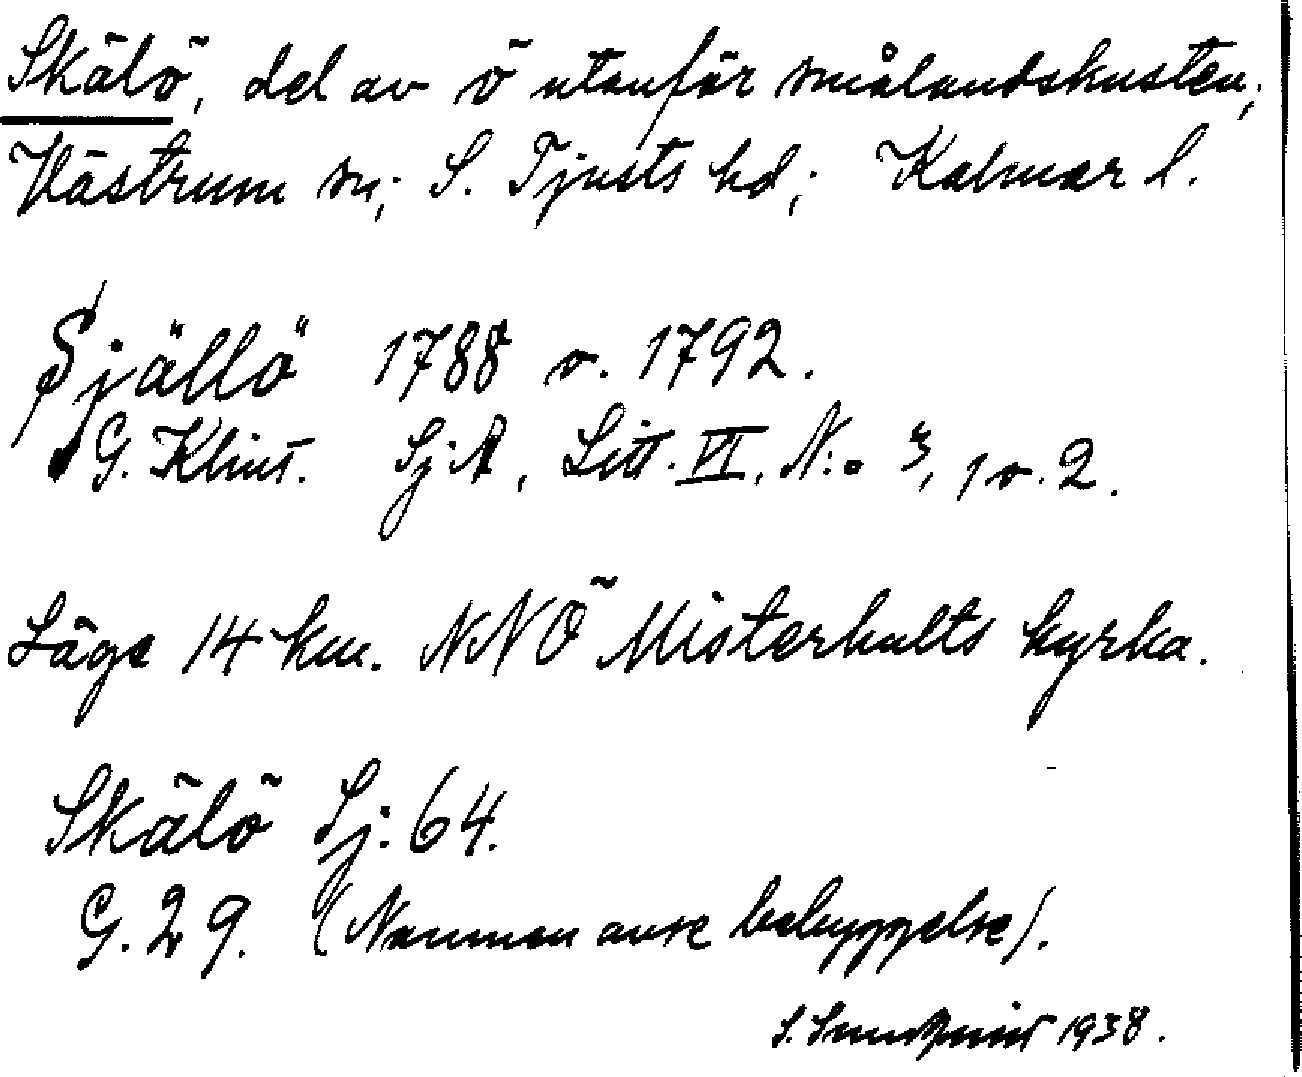 Skälö, del av ö utanför smålandskusten,
Västrum sn; S. Tjusts hd; Kalmar l.
Själlö 1788 o. 1792.
G. Klint. SjA, Litt. VI, N:o 3, 1 o. 2.
Läge 14 km. NNÖ Misterhults kyrka.
Skälö Sj. 64.
G. 29. (Namnen avse bebyggelse).
S. 1938.